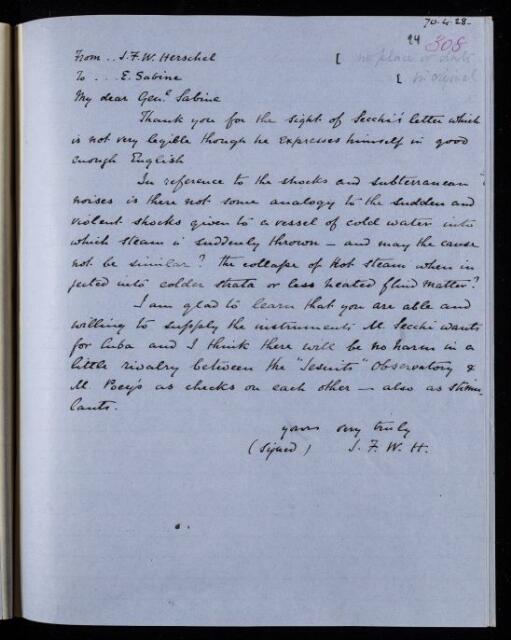 70.4.28.
24 308
From .. J.F.W. Herschel [ no place or date
To ... E. Sabine [ in original
My dear Genl. Sabine
Thank you for the sight of Secchi's letter which
is not very legible though he expresses himself in good
enough English
In reference to the shocks and subterranean
noises is there not some analogy to the sudden and
violent shocks given to a vessel of cold water into
which steam is suddenly thrown – and may the cause
not be similar? the collapse of Hot Steam when in
jected into colder strata or less heated fluid matter?
I am glad to learn that you are able and
willing to supply the instruments M. Secchi wants
for Cuba and I think there will be no harm in a
little rivalry between the "Jesuits" Observatory &
M. Poey's as checks on each other – also as stimu-
lants.
yours very truly
(signed) J. F. W. H.